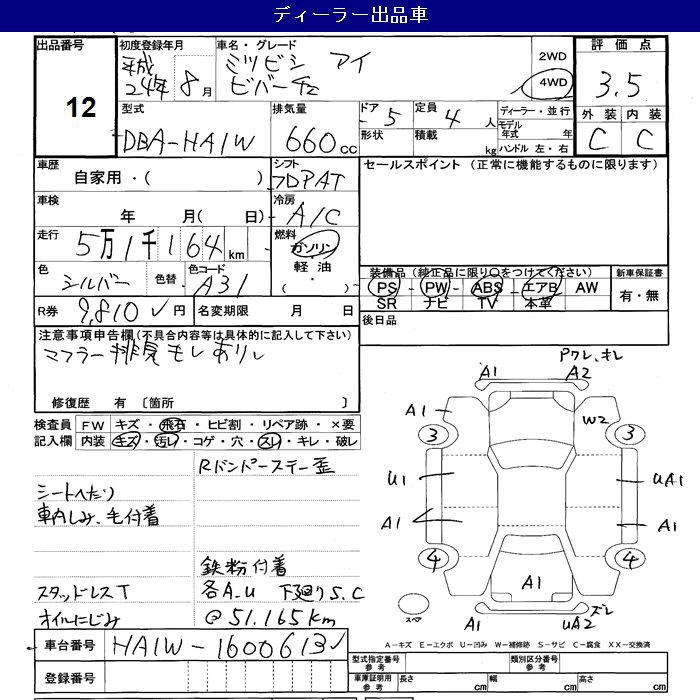 ディーラー出品車
出品番号 12
初度登録年月 平成24年8月
車名・グレード ミツビシ アイ ビバーチェ
2WD 4WD
評価点 3.5
外装 内装
C C
型式 DBA-HA1W
排気量 660cc
ドア 5
定員 4人
形状
積載 kg
ディーラー・並行
モデル年式 年
ハンドル 左・右
車歴 自家用・( )
シフト フロアAT
セールスポイント (正常に機能するものに限ります)
車検 年 月( 日)
冷房 A/C
走行 5万1千164km
燃料 ガソリン・軽油・( )
色 シルバー
色替
色コード A31
装備品 (純正品に限り○をつけてください)
PS・PW・ABS・エアB AW
SR ナビ TV 本革
新車保証書
有・無
R券 9,810円
名変期限 月 日
後日品
注意事項申告欄(不具合内容等は具体的に記入して下さい)
マフラー排
修復歴 有 〔箇所 〕
検査員記入欄
FW キズ・飛石・ヒビ割・リペア跡・×要
内装 キズ・汚レ・コゲ・穴・スレ・キレ・破レ
Rバンパーステー歪
シートへたり
車内しみ、毛付着
鉄粉付着
スタッドレスT 各A.U 下廻りS.C
オイルにじみ @51.165km
車台番号 HA1W-1600613
登録番号
Pワレ、キレ
A1 A2
A1 W2
3 3
U1 UA1
A1 A1
4 4
A1
スペア
A1 UA2 ズレ
A-キズ E-エクボ U-凹み W-補修跡 S-サビ C-腐食 XX-交換済
型式指定番号 参考
類別区分番号 参考
車庫証明用 参考
長さ cm 幅 cm 高さ cm